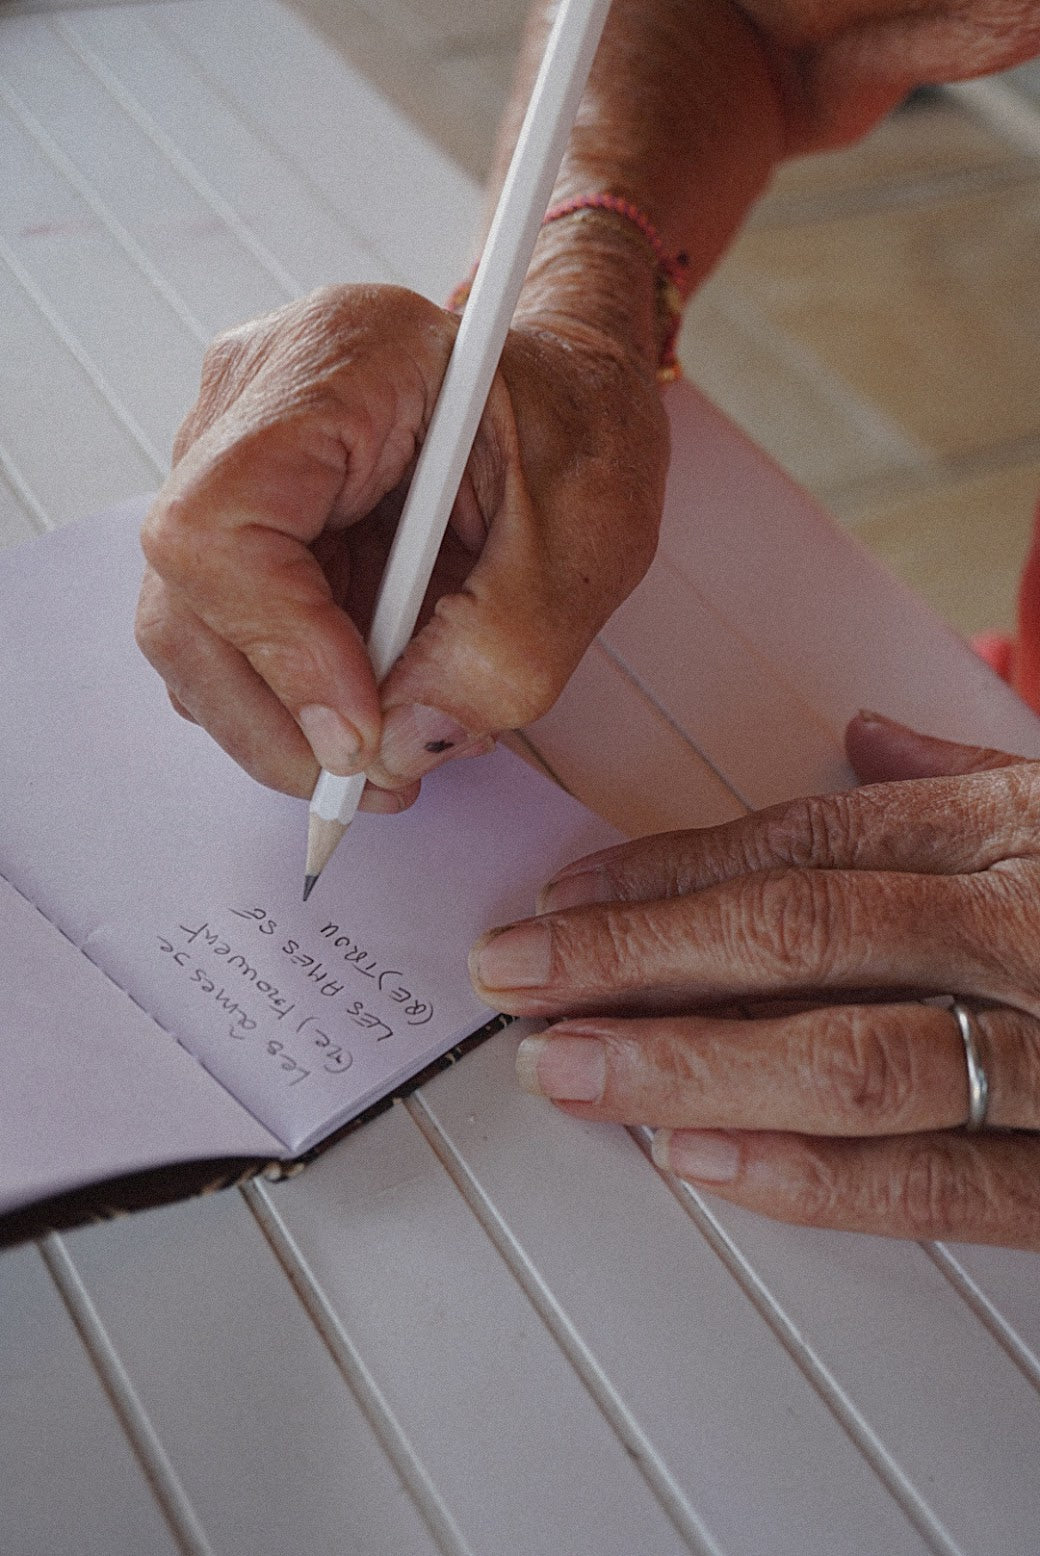 Les âmes se
(re)trouvent
LES AMES SE
(RE)TROU